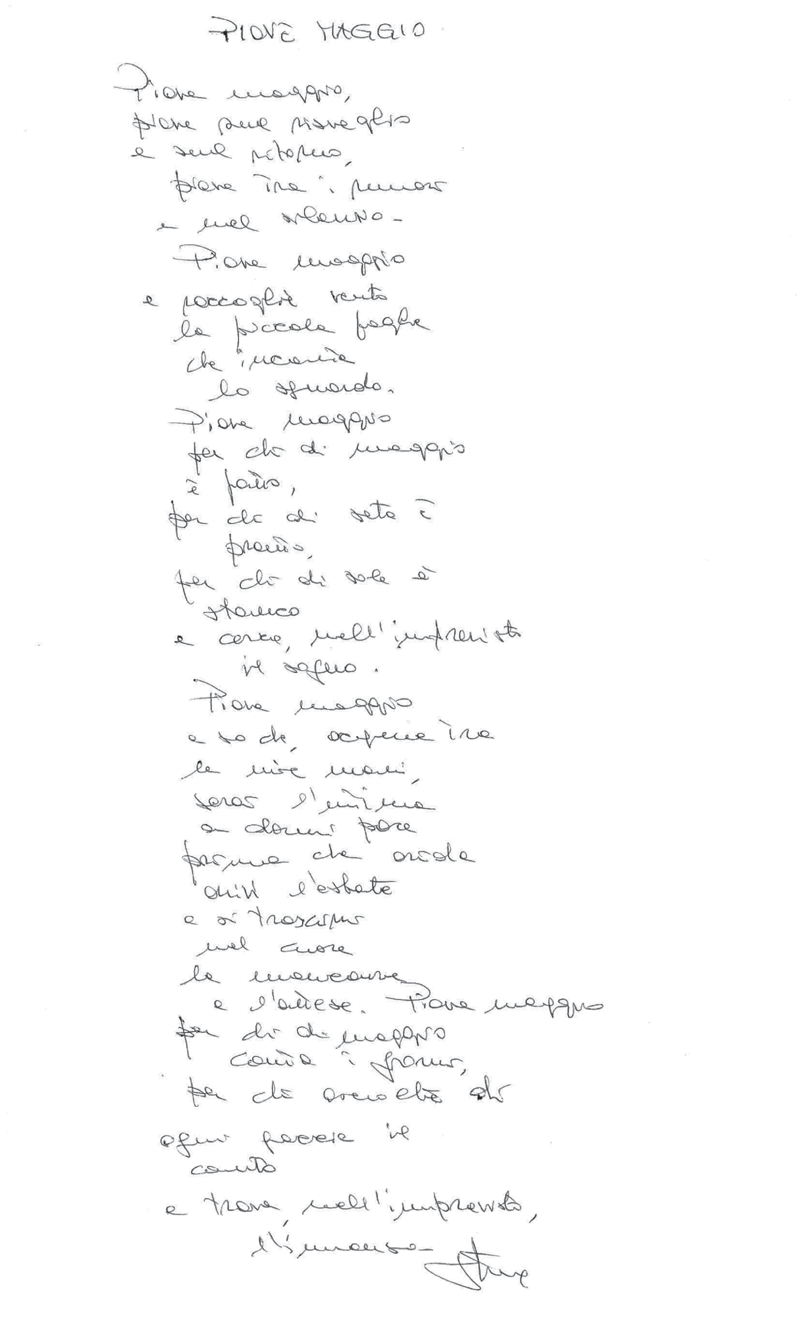 PIOVE MAGGIO
Piove maggio,
piove sul risveglio
e sul ritorno,
piove tra i rumori
e nel silenzio -
Piove maggio
e raccoglie vento
la piccola foglia
che incanta
lo sguardo.
Piove maggio
per chi di maggio
è fatto,
per chi di seta è
per chi di sole è
stanco
e cerca, nell'imprevisto
il sogno.
Piove maggio
e so che, appena tra
le mie mani,
sarai l'ultima
a darmi pace
prima che arida
arrivi l'estate
e si trascini
nel cuore
la mancanza
e l'attesa. Piove maggio
per chi di maggio
conta i giorni,
per chi ascolta di
ogni goccia il
canto
e trova, nell'imprevisto,
l'immenso -